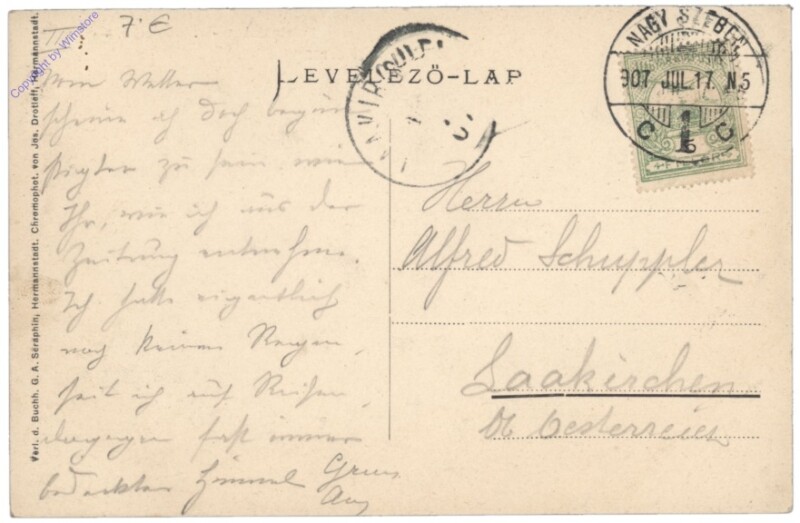 7.€
Copyright by Wimstore
Verl. d. Buchh. G. A. Seraphin, Hermannstadt. Chromophot. von Jos. Drotleff, Hermannstadt.
LEVELEZŐ-LAP
NAGY SZEBEN
907 JUL. 17. N5
C C
Vom Wetter
scheine ich doch begün
stigter zu sein wie
Ihr, wie ich aus der
Zeitung entnehme.
Ich hatte eigentlich
noch keinen Regen,
seit ich auf Reisen,
dagegen fast immer
bedeckten Himmel
Herrn
Alfred Schuppler
Laakirchen
Ob Oesterreich